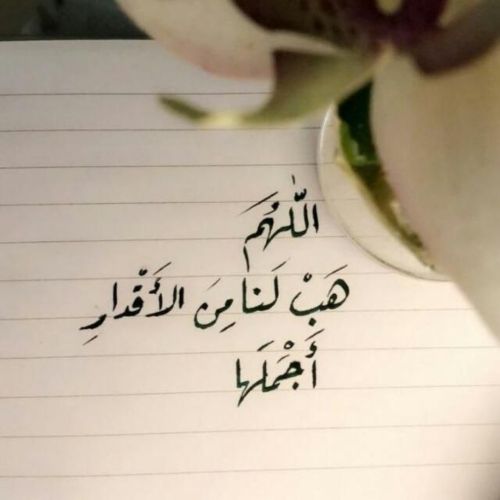 اللّٰهُمَ
هَبْ لَنا مِنَ الأَقْدارِ
أَجْمَلَها